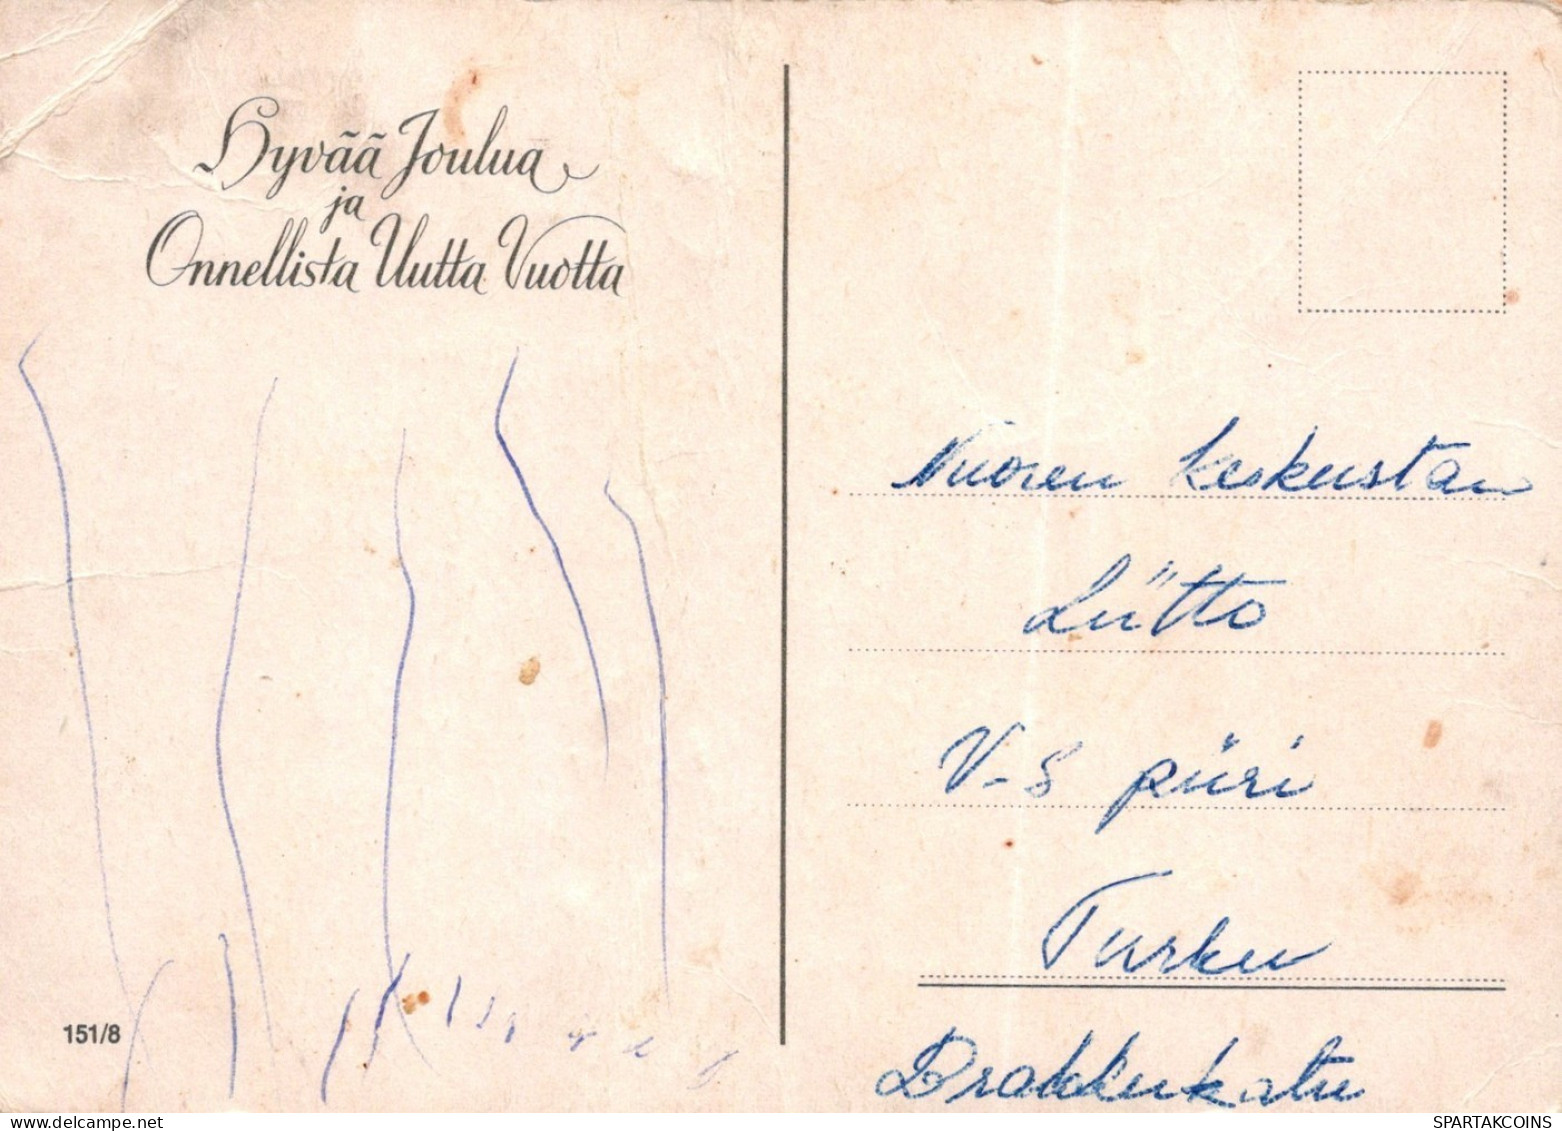 Hyvää Joulua
ja
Onnellista Uutta Vuotta
Nuoren Keskustan
Liitto
V-S piiri
Turku
Brahkkukatu
151/8
SPARTAKCOINS